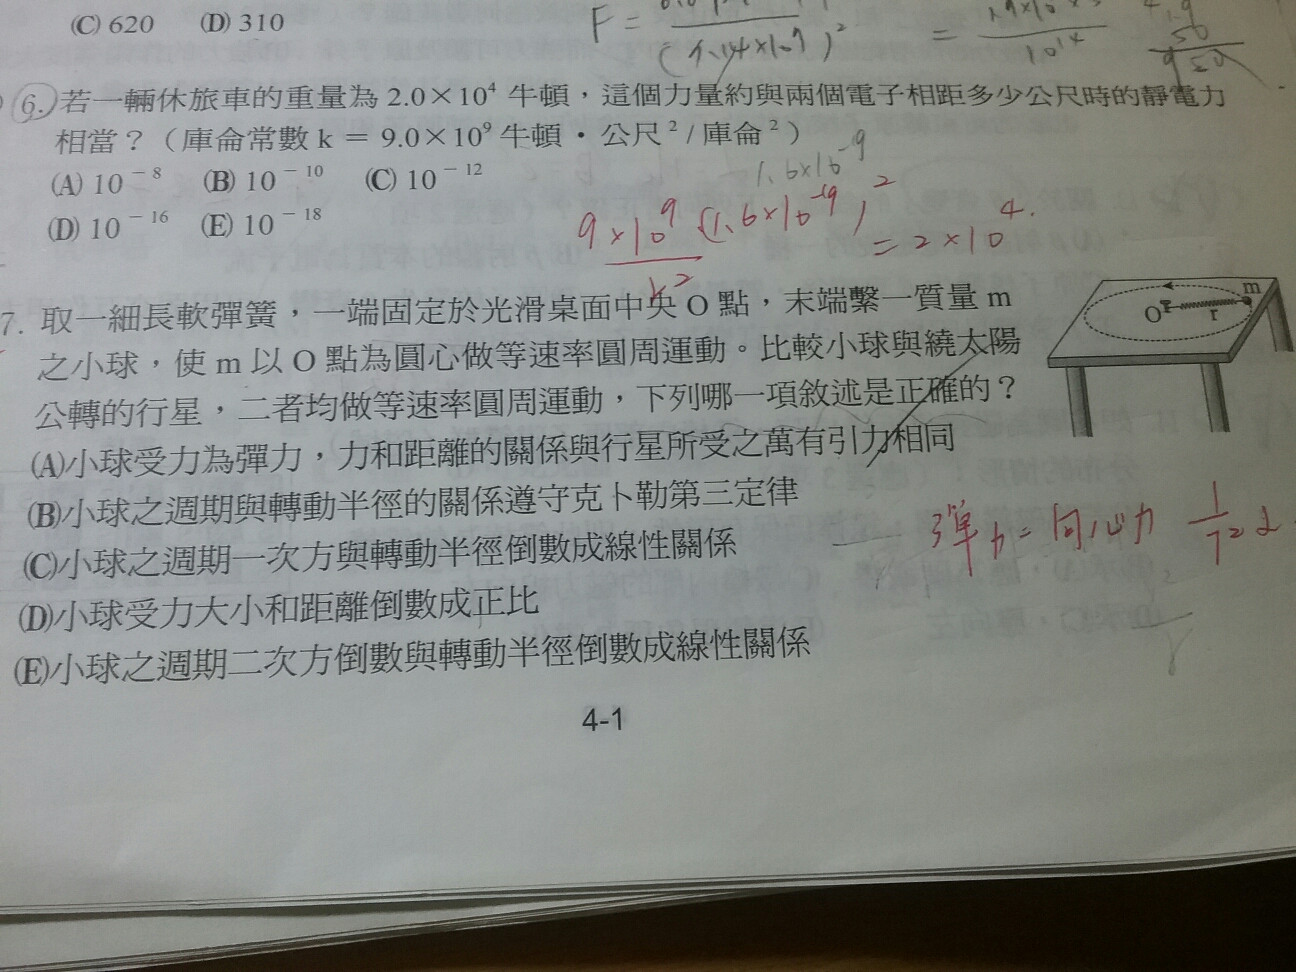 (C) 620 (D) 310
F =
(1.14×10⁻⁹)²
=
10¹⁴
6. 若一輛休旅車的重量為 2.0×10⁴ 牛頓，這個力量約與兩個電子相距多少公尺時的靜電力
相當？（庫侖常數 k ＝ 9.0×10⁹ 牛頓・公尺²/庫侖²）
(A) 10⁻⁸ (B) 10⁻¹⁰ (C) 10⁻¹²
1.6×10⁻¹⁹
(D) 10⁻¹⁶ (E) 10⁻¹⁸
9×10⁹ (1.6×10⁻¹⁹)² = 2×10⁴.
7. 取一細長軟彈簧，一端固定於光滑桌面中央 O 點，末端繫一質量 m
之小球，使 m 以 O 點為圓心做等速率圓周運動。比較小球與繞太陽
公轉的行星，二者均做等速率圓周運動，下列哪一項敘述是正確的？
O r m
(A)小球受力為彈力，力和距離的關係與行星所受之萬有引力相同
(B)小球之週期與轉動半徑的關係遵守克卜勒第三定律
(C)小球之週期一次方與轉動半徑倒數成線性關係
彈力=向心力
(D)小球受力大小和距離倒數成正比
(E)小球之週期二次方倒數與轉動半徑倒數成線性關係
4-1